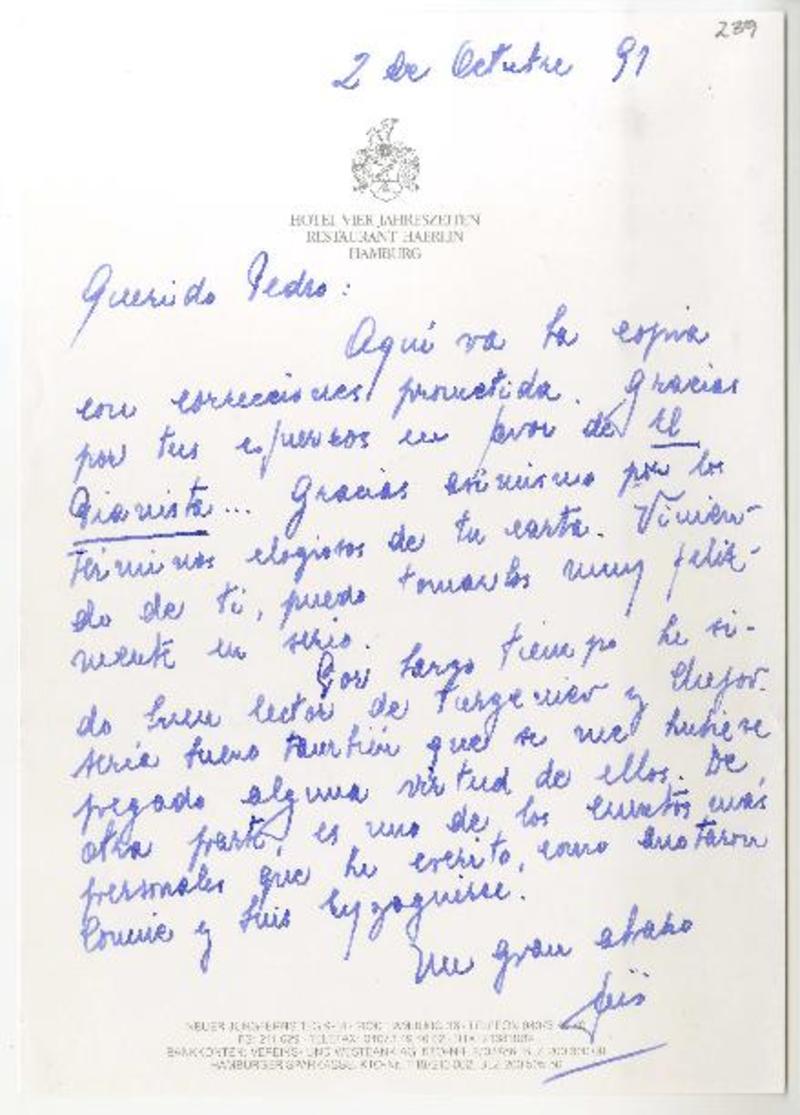 239
2 de Octubre 91
HOTEL VIER JAHRESZEITEN
RESTAURANT HAERLIN
HAMBURG
Querido Pedro:
Aquí va la copia
con correcciones prometida. Gracias
por tus esfuerzos en favor de El
Pianista... Gracias asimismo por los
términos elogiosos de tu carta. Vinien-
do de ti, puedo tomarlos muy feliz-
mente en serio.
Por largo tiempo he si-
do buen lector de Turgeniev y Chejov.
Sería bueno también que se me hubiese
pegado alguna virtud de ellos. De
otra parte, es uno de los cuentos más
personales que he escrito, como anotaron
Connie y Luis Eyzaguirre.
Un gran abrazo
HAMBURGER SPARKASSE,